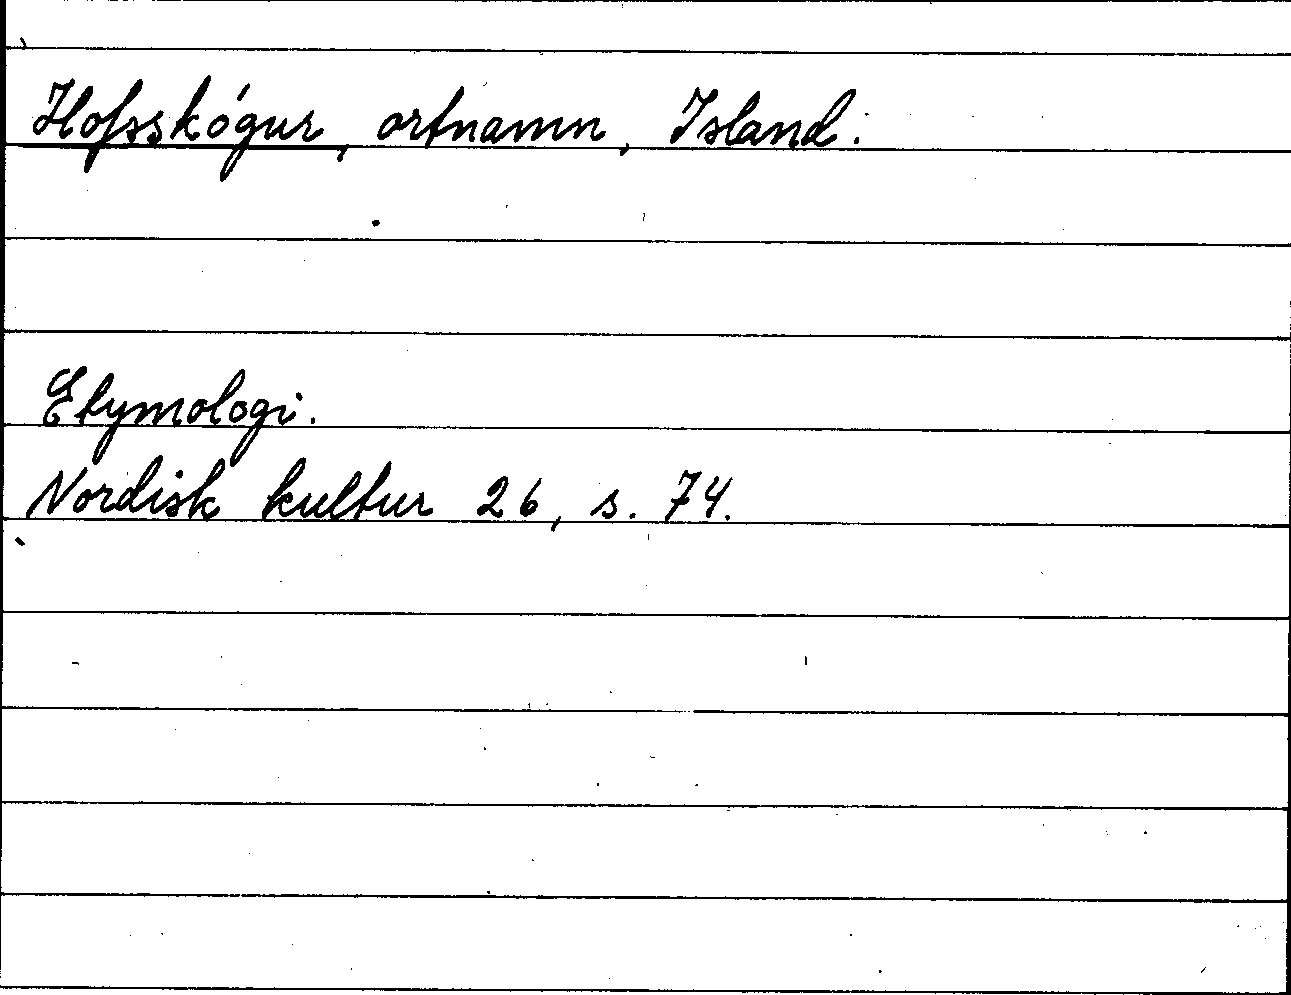 Hofsskógur, ortnamn, Island.
Etymologi.
Nordisk kultur 26, s. 74.